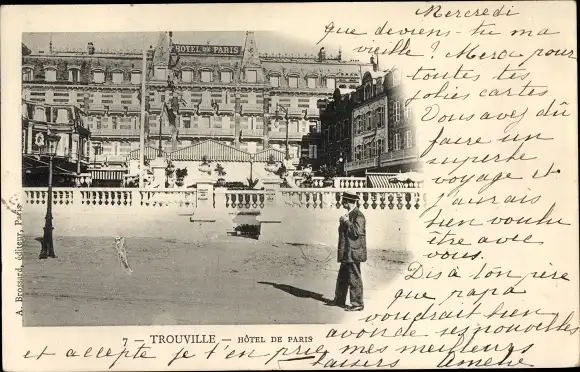 Mercredi
que deviens-tu ma
vieille ? Merci pour
toutes tes
jolies cartes
Vous avez dû
faire un
superbe
voyage et
j'aurais
bien voulu
être avec
vous.
Dis à ton père
que papa
voudrait bien
avoir de ses nouvelles
et accepte je t'en prie mes meilleurs
baisers Amélie
HOTEL DE PARIS
A. Brossard, éditeur, Paris
7 - TROUVILLE - HÔTEL DE PARIS